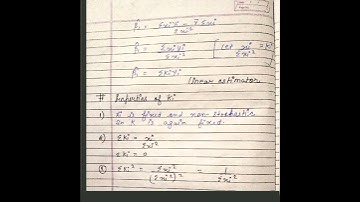 β̂₁ = Σxiyi - ȳ Σxi
Σxi²
β̂₁ = Σxiyi [Let xi = Ki
Σxi² Σxi²
β̂₁ = ΣKiYi
linear estimator
# Properties of Ki
1) Xi is fixed and non-stochastic
So K is again fixed.
2) ΣKi = xi
Σxi²
ΣKi = 0
3) ΣKi² = Σxi² = 1
(Σxi²)² Σxi²